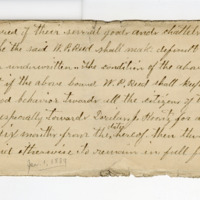 of their several goods and chattels
the said W. P. Rest shall make default
underwritten. The condition of the above
of the above bound W. P. Rest shall keep
good behavior towards all the citizens of
especially towards
months from the date hereof then this
otherwise to remain in full f
Jan. 1, 1889